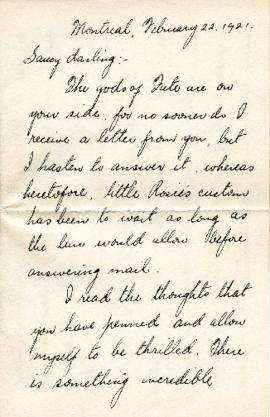 Montreal, February 22, 1921.
Saucy darling:-
The gods of Fate are on
your side, for no sooner do I
receive a letter from you, but
I hasten to answer it, whereas
heretofore, little Rosie's custom
has been to wait as long as
the law would allow before
answering mail.
I read the thoughts that
you have penned and allow
myself to be thrilled. There
is something incredible